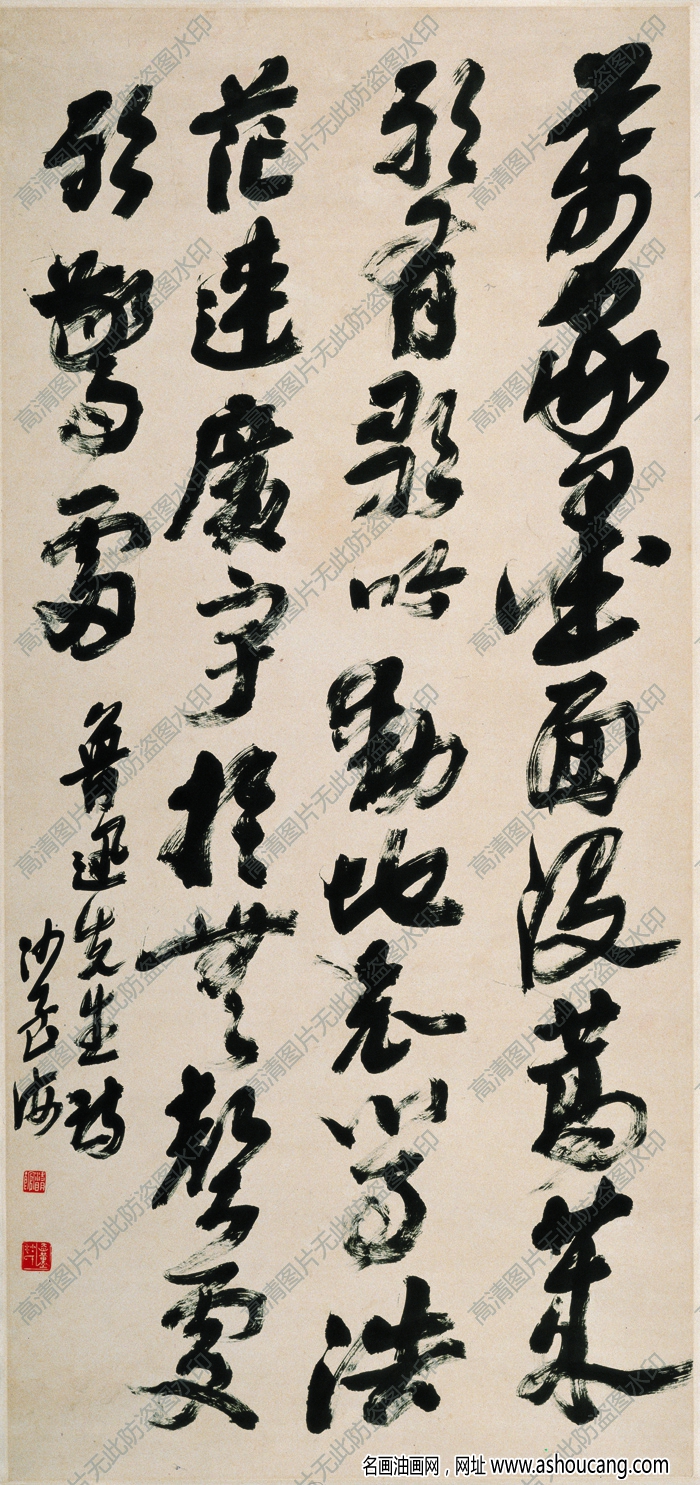 萬家墨面没蒿萊
敢有歌吟動地哀心事浩
茫連廣宇於無聲處
聽驚雷 魯迅先生詩
沙孟海
高清图片无此防盗图水印
名画油画网，网址 www.ashoucang.com